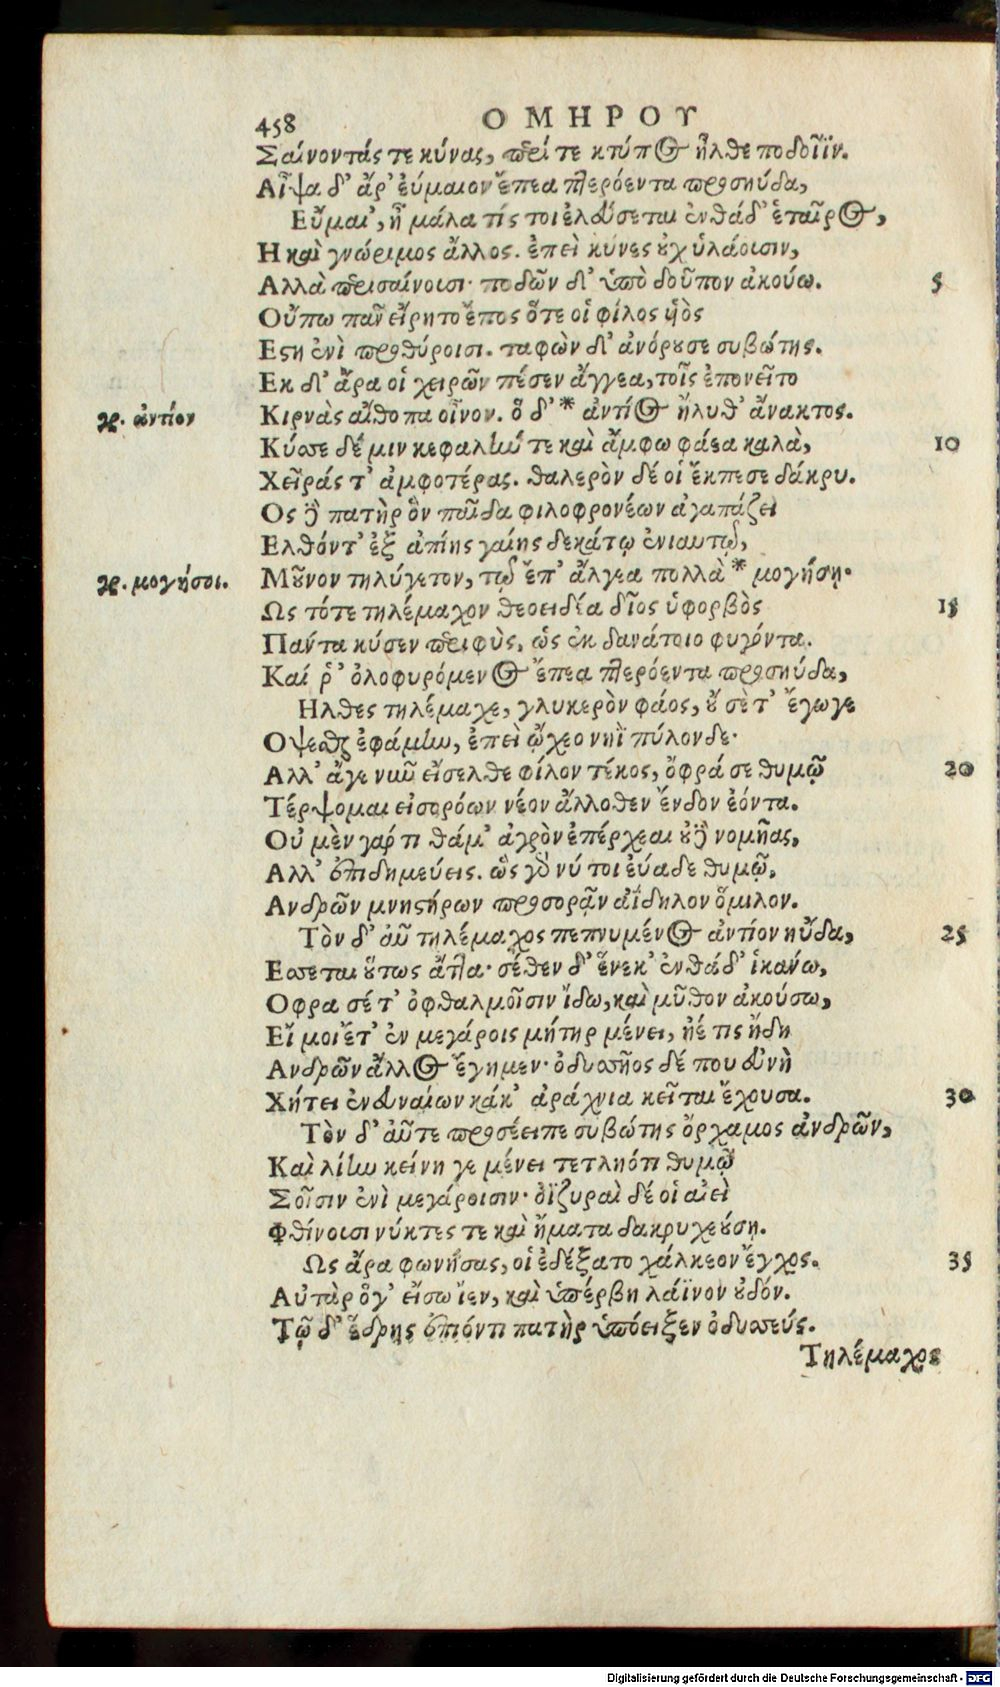 458 ΟΜΗΡΟΥ
Σαίνοντάς τε κύνας, περί τε κτύπος ἦλθε ποδοῖϊν.
Αἶψα δ' ἄρ' ἐύμαιον ἔπεα πτερόεντα προσηύδα,
Εὔμαι', ἦ μάλα τίς τοι ἐλεύσεται ἐνθάδ' ἑταῖρος,
Η καὶ γνώριμος ἄλλος. ἐπεὶ κύνες οὐχ ὑλάοισιν,
Αλλὰ περισαίνουσι· ποδῶν δ' ὑπὸ δοῦπον ἀκούω. 5
Οὔπω πᾶν εἴρητο ἔπος ὅτε οἱ φίλος υἱὸς
Εστη ἐνὶ προθύροισι. ταφὼν δ' ἀνόρουσε συβώτης.
Εκ δ' ἄρα οἱ χειρῶν πέσεν ἄγγεα, τοῖς ἐπονεῖτο
γρ. ἀντίον Κιρνὰς αἴθοπα οἶνον. ὅ δ' * ἀντίος ἤλυθ' ἄνακτος.
Κύσσε δέ μιν κεφαλὴν τε καὶ ἄμφω φάεα καλὰ, 10
Χεῖράς τ' ἀμφοτέρας. θαλερὸν δέ οἱ ἔκπεσε δάκρυ.
Ος δὲ πατὴρ ὃν παῖδα φιλοφρονέων ἀγαπάζει
Ελθόντ' ἐξ ἀπίης γαίης δεκάτῳ ἐνιαυτῷ,
γρ. μογήσοι. Μοῦνον τηλύγετον, τῷ ἔπ' ἄλγεα πολλὰ * μογήσῃ·
Ως τότε τηλέμαχον θεοειδέα δῖος ὑφορβὸς 15
Πάντα κύσεν περιφὺς, ὡς ἐκ θανάτοιο φυγόντα.
Καί ῥ' ὀλοφυρόμενος ἔπεα πτερόεντα προσηύδα,
Ηλθες τηλέμαχε, γλυκερὸν φάος, οὔ σὲ τ' ἔγωγε
Οψεσθαι ἐφάμην, ἐπεὶ ᾤχεο νηῒ πύλον δε·
Αλλ' ἄγε νῦν εἴσελθε φίλον τέκος, ὄφρά σε θυμῷ 20
Τέρψομαι εἰσορόων νέον ἄλλοθεν ἔνδον ἐόντα.
Οὐ μὲν γάρ τι θάμ' ἀγρὸν ἐπέρχεαι οὐδὲ νομῆας,
Αλλ' ἐπιδημεύεις. ὣς γάρ νύ τοι εὐαδε θυμῷ,
Ανδρῶν μνηστήρων προσορᾷν ἀΐδηλον ὅμιλον.
Τὸν δ' αὖ τηλέμαχος πεπνυμένος ἀντίον ηὔδα, 25
Εσσεται οὕτως ἄττα· σέθεν δ' ἕνεκ' ἐνθάδ' ἱκάνω,
Οφρα σέ τ' ὀφθαλμοῖσιν ἴδω, καὶ μῦθον ἀκούσω,
Εἴ μοι ἔτ' ἐν μεγάροις μήτηρ μένει, ἠέ τις ἤδη
Ανδρῶν ἄλλος ἔγημεν· ὀδυσσῆος δέ που εὐνὴ
Χήτει ἐνευναίων κάκ' ἀράχνια κεῖται ἔχουσα. 30
Τὸν δ' αὖτε προσέειπε συβώτης ὄρχαμος ἀνδρῶν,
Καὶ λίην κείνη γε μένει τετληότι θυμῷ
Σοῖσιν ἐνὶ μεγάροισιν· ὀϊζυραὶ δέ οἱ αἰεὶ
Φθίνουσι νύκτες τε καὶ ἤματα δακρυχεούσῃ.
Ως ἄρα φωνήσας, οἱ ἐδέξατο χάλκεον ἔγχος. 35
Αὐτὰρ ὅγ' εἴσω ἴεν, καὶ ὑπέρβη λάϊνον οὐδόν.
Τῷ δ' ἕδρης ἐπιόντι πατὴρ ὑπόειξεν ὀδυσσεύς.
Τηλέμαχος
Digitalisierung gefördert durch die Deutsche Forschungsgemeinschaft - DFG